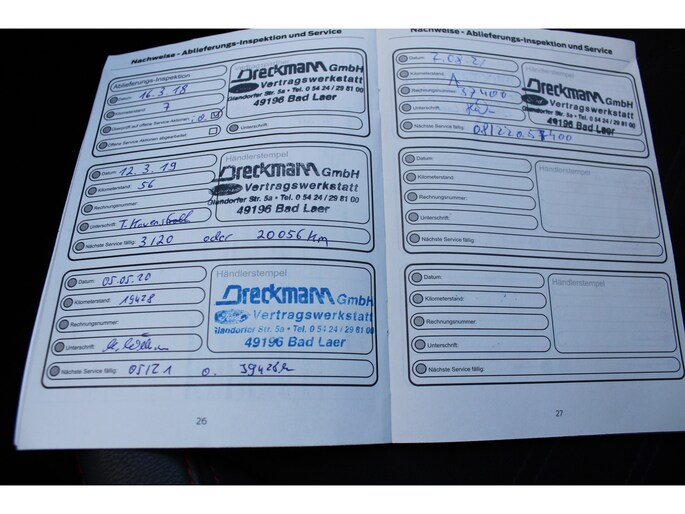 Nachweise - Ablieferungs-Inspektion und Service
Ablieferungs-Inspektion
Datum: 16.3.18
Kilometerstand: 7
Überprüft auf offene Service Aktionen: i.O.
Offene Service Aktionen abgearbeitet:
Dreckmann GmbH
Vertragswerkstatt
Glandorfer Str. 5a • Tel. 0 54 24 / 29 81 00
49196 Bad Laer
Unterschrift:
Datum: 12.3.19
Kilometerstand: 56
Rechnungsnummer:
Unterschrift:
Nächste Service fällig: 3/20 oder 20056 km
Händlerstempel
Dreckmann GmbH
Vertragswerkstatt
Glandorfer Str. 5a • Tel. 0 54 24 / 29 81 00
49196 Bad Laer
Datum: 05.05.20
Kilometerstand: 19428
Rechnungsnummer:
Unterschrift:
Nächste Service fällig: 05/21 o. 39428
Händlerstempel
Dreckmann GmbH
Vertragswerkstatt
Glandorfer Str. 5a • Tel. 0 54 24 / 29 81 00
49196 Bad Laer
26
Nachweise - Ablieferungs-Inspektion und Service
Datum:
Kilometerstand:
Rechnungsnummer:
Unterschrift:
Nächste Service fällig: 08/22
Händlerstempel
Dreckmann GmbH
Vertragswerkstatt
Glandorfer Str. 5a • Tel. 0 54 24 / 29 81 00
49196 Bad Laer
Datum:
Kilometerstand:
Rechnungsnummer:
Unterschrift:
Nächste Service fällig:
Händlerstempel
Datum:
Kilometerstand:
Rechnungsnummer:
Unterschrift:
Nächste Service fällig:
Händlerstempel
27